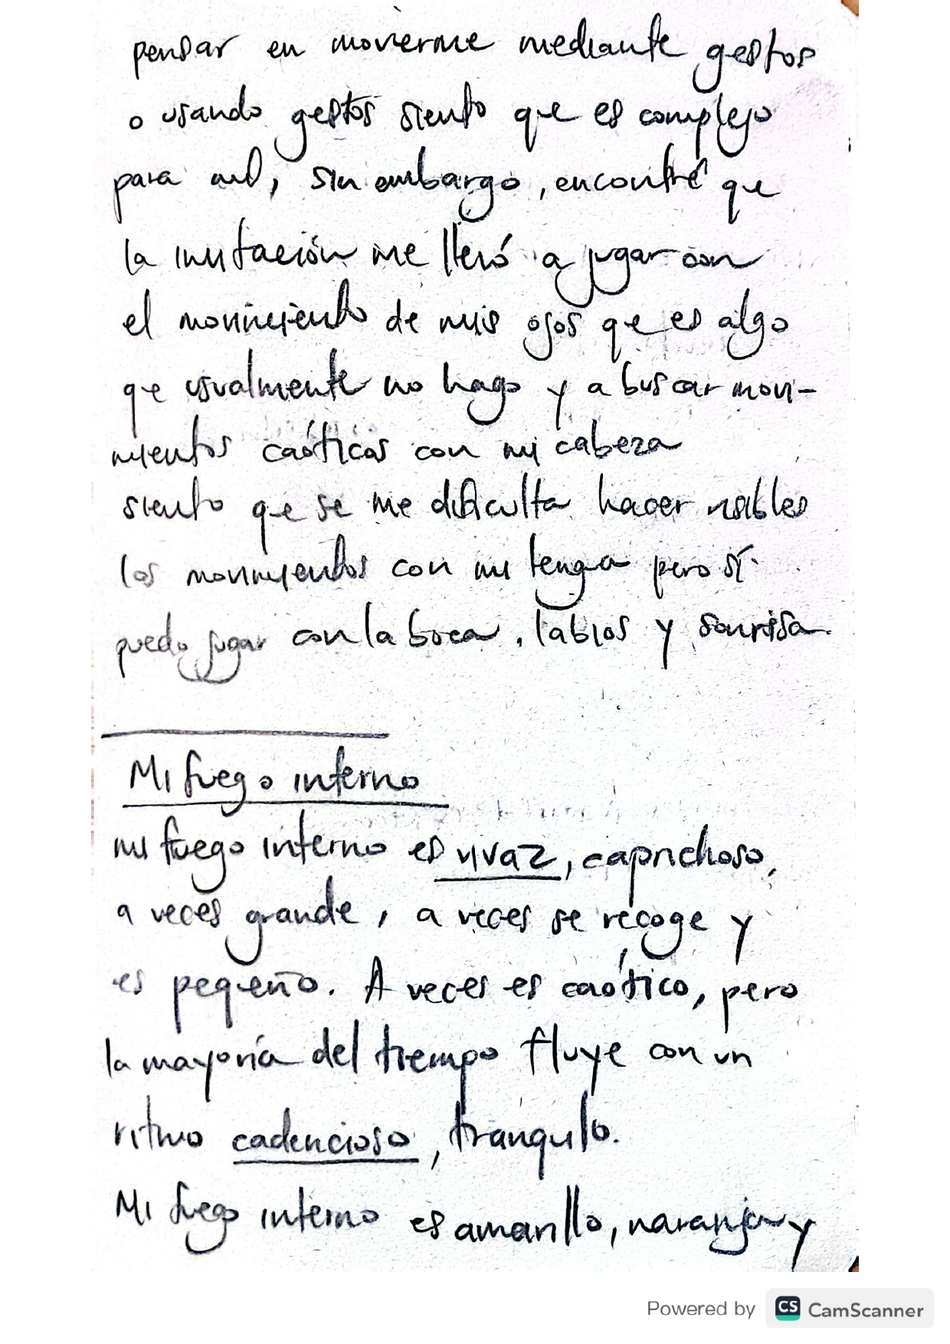 pensar en moverme mediante gestos
o usando gestos siento que es complejo
para mí, sin embargo, encontré que
la imitación me llevó a jugar con
el movimiento de mis ojos que es algo
que usualmente no hago y a buscar movi-
mientos caóticos con mi cabeza
siento que se me dificulta hacer visibles
los movimientos con mi lengua pero sí
puedo jugar con la boca, labios y sonrisa.
Mi fuego interno
mi fuego interno es vivaz, caprichoso,
a veces grande, a veces se recoge y
es pequeño. A veces es caótico, pero
la mayoría del tiempo fluye con un
ritmo cadencioso, tranquilo.
Mi fuego interno es amarillo, naranja y
Powered by CS CamScanner